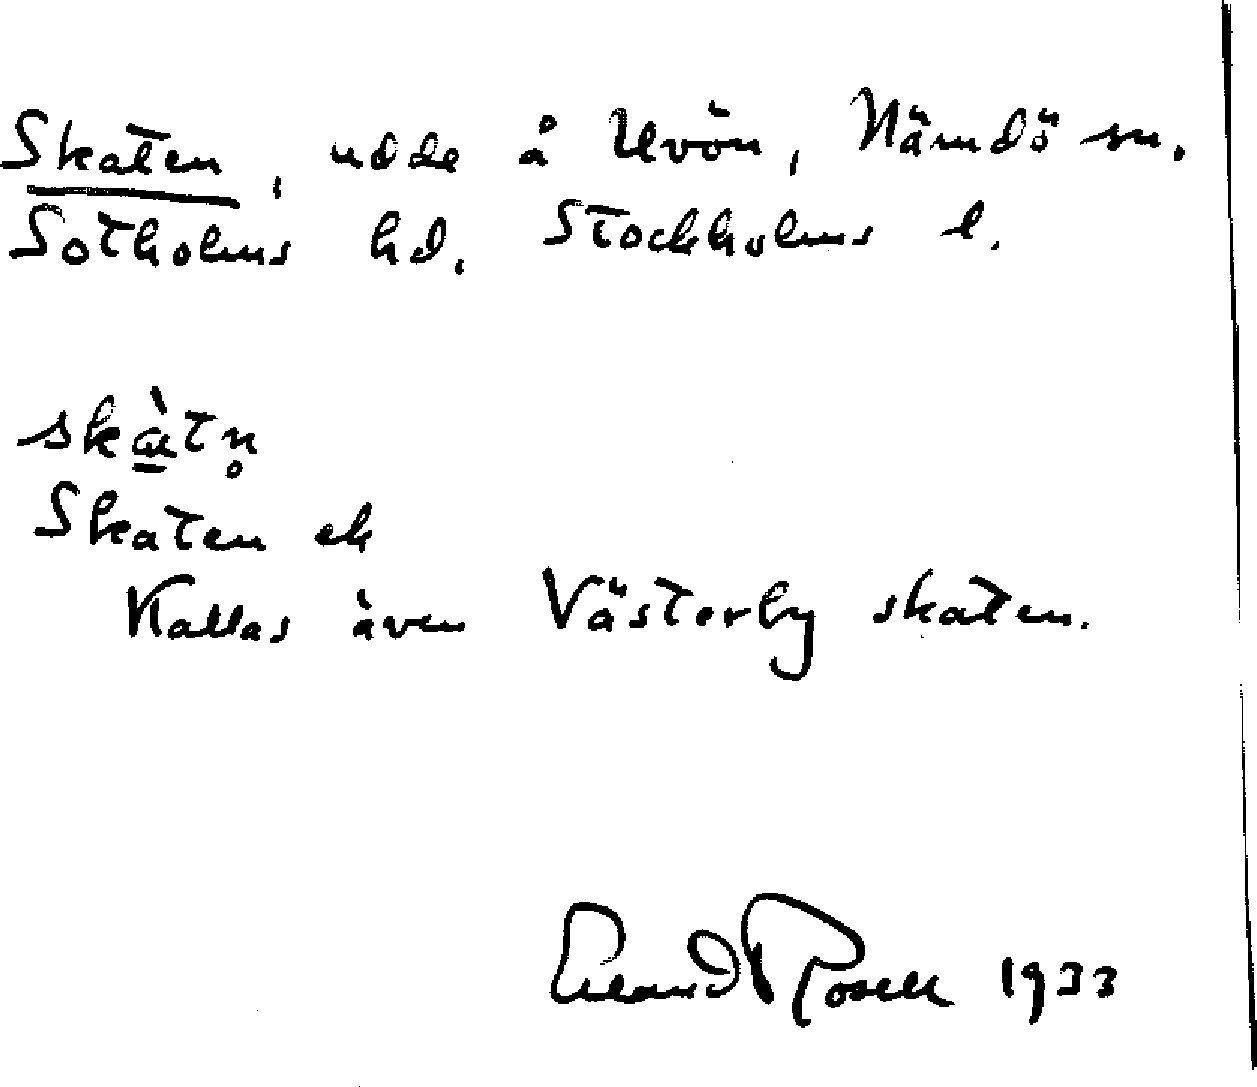 Skaten, udde å Uvön, Nämdö sn.
Sotholms hd. Stockholms l.
skàtn̥
Skaten ek
Kallas även Västerby skaten.
Erland Rosell 1933